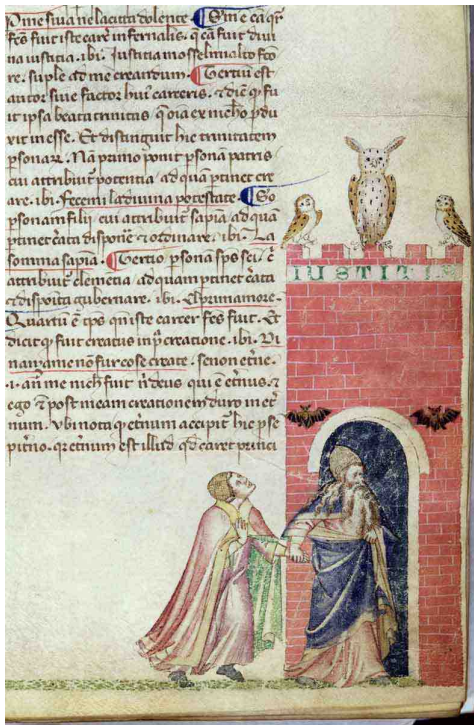 P me si va ne la citta dolente. ¶ Sm ē cā qr̄
fcs fuit iste carcer infernalis. q̄ cā fuit diui
na iustitia. ibi. Iustitia mosse l mio alto fcto
re. suple ad me creandum. ¶ Tertiū est
autor siue factor huiꝰ carceris. ⁊ dic̄ q̄ fu
it ipsa beata trinitas q̄ oīa ex nicħo ꝓdu
xit in esse. Et distinguit hic trinitatem
ꝑsonaꝝ. Nā primo ponit ꝑsonā patris
cui attribuit᷑ potentia. ad quā ꝑtinet cre
are. ibi. fecemi la diuina potestate. ¶ So
ꝑsonam filii cui attribuit᷑ sapīa ad quā
ꝑtinet cāta disponē ⁊ ordinare. ibi. La
somma sapīa. ¶ Tertio ꝑsona sp̄s sc̄i. c̄
attribuit᷑ clemētia ad quam ꝑtinet cāta
⁊ disposita gubernare. ibi. el primo amore.
Quartū ē tp̄s qn̄ iste carcer fcs fuit. Et
dicit q̄ fuit creatus in pᵃ creatione. ibi. Di
nançi a me nō fur cose create. se non et̄ne.
.i. an̄ me nich fuit n̄ deus qui ē et̄nus. ⁊
ego ⁊ post meam creationem duro in et̄
num. Vbi nota q̄ et̄num accipit᷑ hic ꝓ se
pit̄no. qr̄ et̄num est illud qd̄ caret princi
IUSTITIA